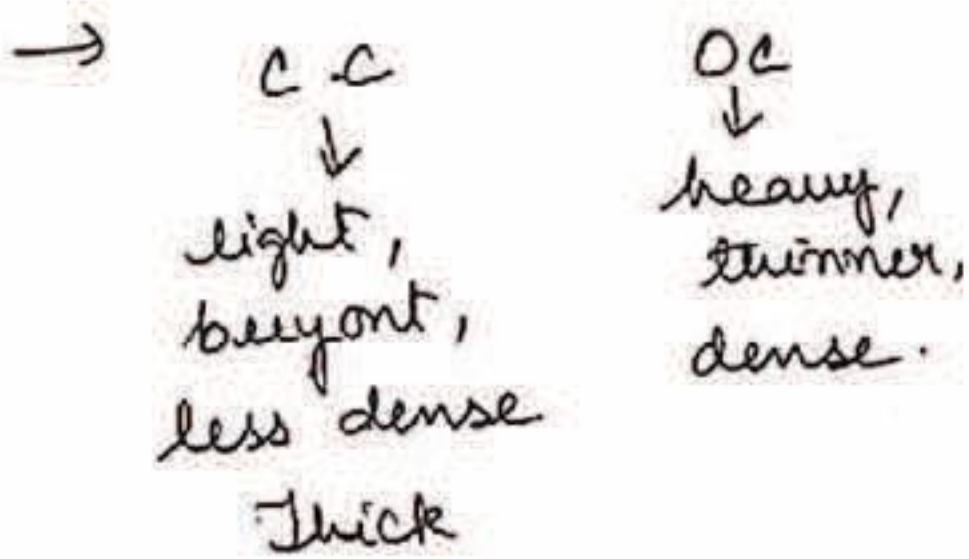 →
C.C
↓
light,
buyont,
less dense
Thick
OC
↓
heavy,
thinner,
dense.